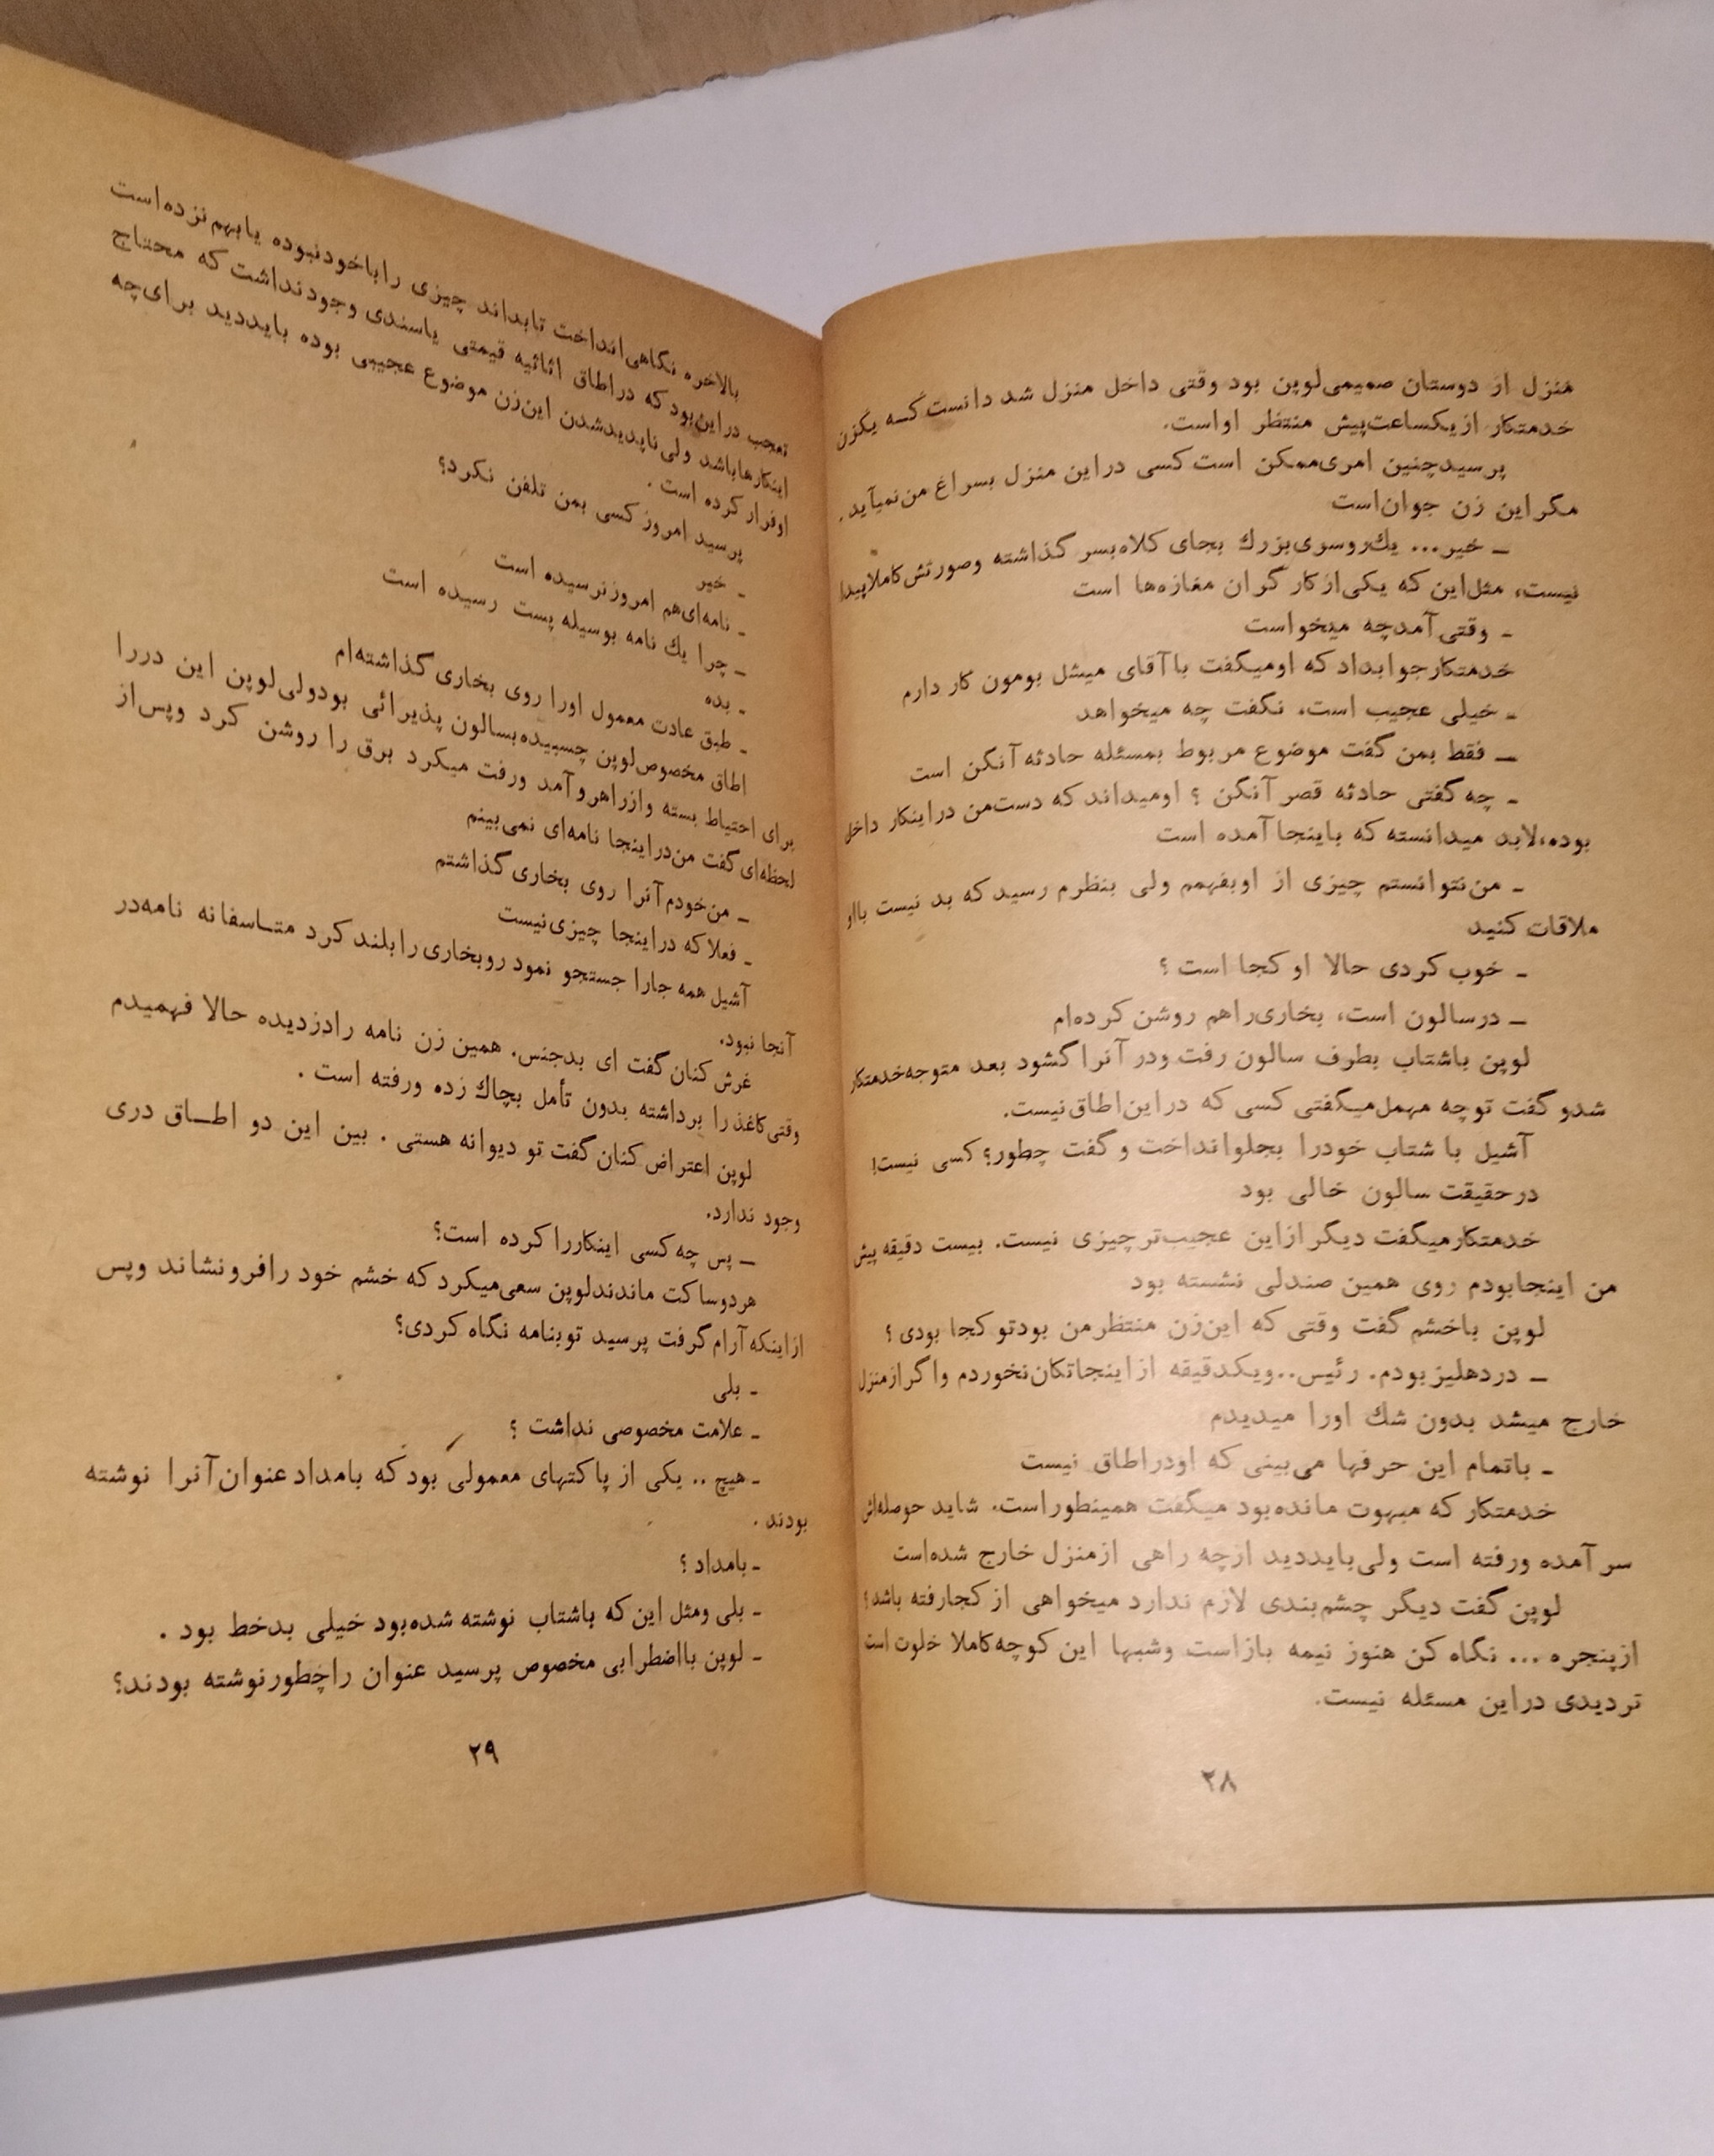 منزل از دوستان صمیمی‌لوپن بود وقتی داخل منزل شد دانست که یکزن
خدمتکار ازیکساعت‌پیش منتظر اواست.
پرسیدچنین امری‌ممکن است‌کسی دراین منزل بسراغ من‌نمیآید.
مگراین زن جوان‌است
ـ خیر... یك‌روسری‌بزرك بجای کلاه‌بسر گذاشته وصورتش‌کاملاپیدا
نیست، مثل‌این که یکی‌ازکارگران مغازه‌ها است
ـ وقتی‌آمدچه میخواست
خدمتکارجوابداد که اومیگفت باآقای میشل بومون کار دارم
ـ خیلی عجیب است، نگفت چه میخواهد
ـ فقط بمن گفت موضوع مربوط بمسئله حادثه آنگن است
ـ چه گفتی حادثه قصر آنگن ؟ اومیداند که دست‌من دراینکار داخل
بوده،لابد میدانسته که باینجاآمده است
ـ من‌نتوانستم چیزی از اوبفهمم ولی بنظرم رسید که بد نیست بااو
ملاقات کنید
ـ خوب کردی حالا او کجا است ؟
ـ درسالون است، بخاری‌راهم روشن کرده‌ام
لوپن باشتاب بطرف سالون رفت ودر آنرا گشود بعد متوجه‌خدمتکار
شدو گفت توچه مهمل‌میگفتی کسی که دراین‌اطاق‌نیست.
آشیل با شتاب خودرا بجلوانداخت و گفت چطور؟ کسی نیست!
درحقیقت سالون خالی بود
خدمتکارمیگفت دیگر ازاین عجیب‌ترچیزی نیست. بیست دقیقه پیش
من اینجابودم روی همین صندلی نشسته بود
لوپن باخشم گفت وقتی که این‌زن منتظرمن بودتو کجا بودی ؟
ـ دردهلیزبودم. رئیس..ویکدقیقه ازاینجاتکان‌نخوردم واگرازمنزل
خارج میشد بدون شك اورا میدیدم
ـ باتمام این حرفها می‌بینی که اودراطاق نیست
خدمتکار که مبهوت مانده‌بود میگفت همینطوراست. شاید حوصله‌اش
سرآمده ورفته است ولی‌بایددید ازچه راهی ازمنزل خارج شده‌است
لوپن گفت دیگر چشم‌بندی لازم ندارد میخواهی از کجارفته باشد؟
ازپنجره ... نگاه کن هنوز نیمه بازاست وشبها این کوچه‌کاملا خلوت است
تردیدی دراین مسئله نیست.
۲۸
بالاخره نگاهی‌انداخت تابداند چیزی راباخودنبوده یابهم‌نزده‌است
تعجب دراین‌بود که دراطاق اثاثیه قیمتی یاسندی وجودنداشت که محتاج
اینکارهاباشد ولی‌ناپدیدشدن این‌زن موضوع عجیبی بوده بایددید برای‌چه
اوفرار کرده است .
پرسید امروز کسی بمن تلفن نکرد؟
ـ خیر
ـ نامه‌ای‌هم امروزنرسیده است
ـ چرا یك نامه بوسیله پست رسیده است
ـ بده
ـ طبق عادت معمول اورا روی بخاری گذاشته‌ام
اطاق مخصوص‌لوپن چسبیده‌بسالون پذیرائی بودولی‌لوپن این دررا
برای احتیاط بسته وازراهروآمد ورفت میکرد برق را روشن کرد وپس‌از
لحظه‌ای گفت من‌دراینجا نامه‌ای نمی‌بینم
ـ من‌خودم‌آنرا روی بخاری گذاشتم
ـ فعلاکه دراینجا چیزی‌نیست
آشیل همه جارا جستجو نمود روبخاری رابلند کرد متـاسفانه نامه‌در
آنجا نبود.
غرش کنان گفت ای بدجنس. همین زن نامه رادزدیده حالا فهمیدم
وقتی‌کاغذ را برداشته بدون تأمل بچاك زده ورفته است .
لوپن اعتراض کنان گفت تو دیوانه هستی . بین این دو اطـاق دری
وجود ندارد.
ـ پس چه‌کسی اینکاررا کرده است؟
هردوساکت ماندندلوپن سعی‌میکرد که خشم خود رافرونشاند وپس
ازاینکه آرام‌گرفت پرسید توبنامه نگاه کردی؟
ـ بلی
ـ علامت مخصوصی نداشت ؟
ـ هیچ .. یکی از پاکتهای معمولی بود که بامداد عنوان‌آنرا نوشته
بودند .
ـ بامداد ؟
ـ بلی ومثل این که باشتاب نوشته شده‌بود خیلی بدخط بود .
ـ لوپن بااضطرابی مخصوص پرسید عنوان راچطورنوشته بودند؟
۲۹